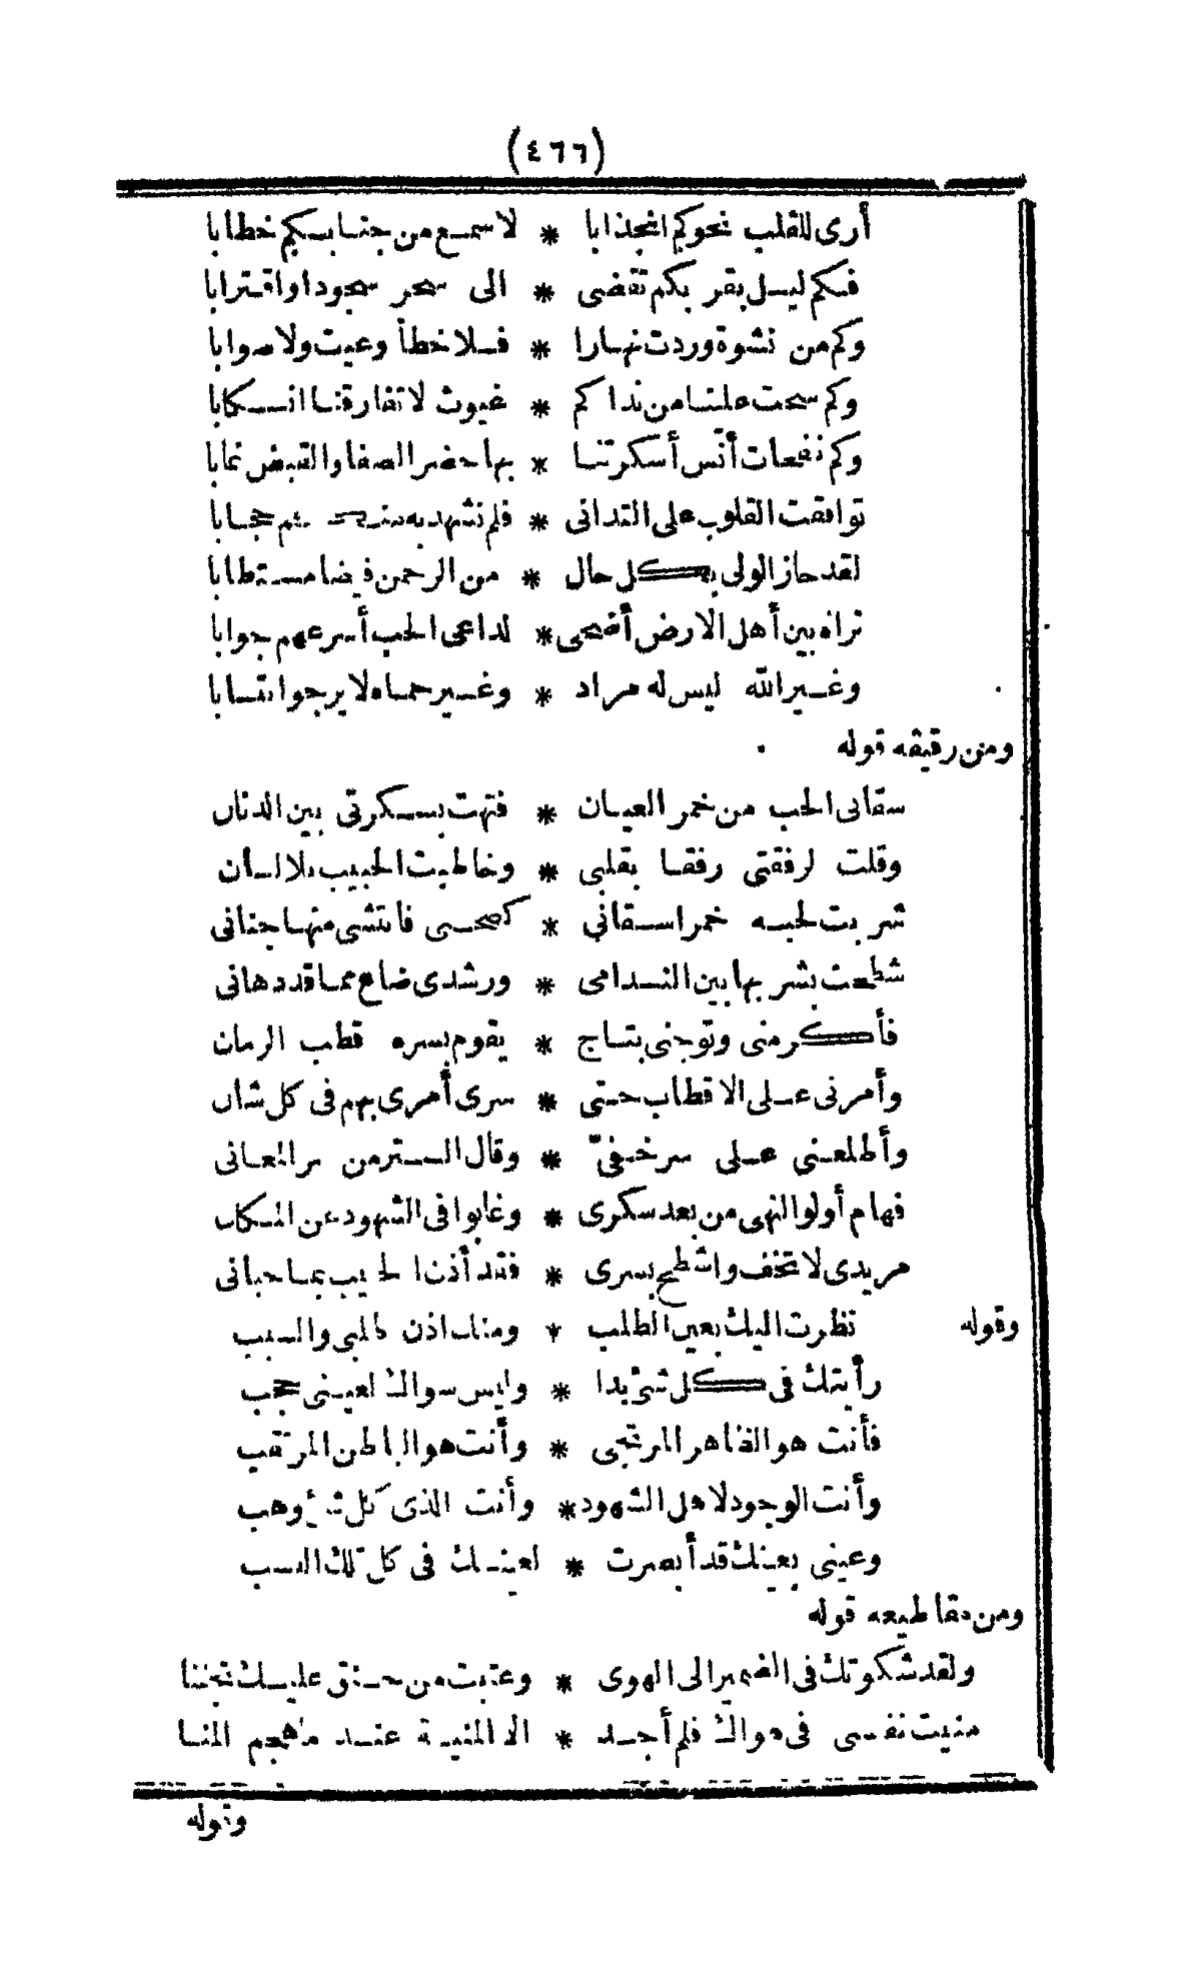 (٤٦٦)
أرى للقلب نحوكم انجذابا * لاسمع من جنابكم خطابا
فكم ليل بقربكم تقضى * الى سحر سجودا واقترابا
وكم من نشوة وردت نهارا * فلا خطأ وعيت ولا صوابا
وكم سحت علينا من نداكم * غيوث لا تفارقنا انسكابا
وكم نفحات أنس أسكرتنا * بها حضر الصفا والقبض غابا
توافقت القلوب على التدانى * فلم نشهد به حجابا
لقد حاز الولى بكل حال * من الرحمن فيضا مستطابا
تراه بين أهل الارض أضحى * لداعى الحب أسرعهم جوابا
وغير الله ليس له مراد * وغير حماه لا يرجو انتسابا
ومن رقيقه قوله
سقانى الحب من خمر العيان * فتهت بسكرتى بين الدنان
وقلت لرفقتى رفقا بقلبى * وخاطبت الحبيب بلا لسان
شربت لحبه خمرا سقانى * كصحبى فانتشى منها جنانى
شطحت بشربها بين الندامى * ورشدى ضاع مما قد دهانى
فأكرمنى وتوجنى بتاج * يقوم بسره قطب الزمان
وأمرنى على الاقطاب حتى * سرى أمرى بهم فى كل شان
وأطلعنى على سر خفىّ * وقال الستر من سر المعانى
فهام أولو النهى من بعد سكرى * وغابوا فى الشهود عن المكان
مريدى لا تخف واشطح بسرى * فقد أذن الحبيب بما حبانى
وقوله نظرت اليك بعين الطلب * ومنك اذن طلبى والسبب
رأيتك فى كل شئ بدا * وليس سواك لعينى حجب
فأنت هو الظاهر المرتجى * وأنت هو الباطن المرتقب
وأنت الوجود لاهل الشهود * وأنت الذى كل شئ وهب
وعينى بعينك قد أبصرت * لعينك فى كل تلك النسب
ومن مقاطيعه قوله
ولقد شكوتك فى الضمير الى الهوى * وعتبت من حنق عليك تجننا
منيت نفسى فى هواك فلم أجد * الا المنية عند ما هجم المنا
وقوله